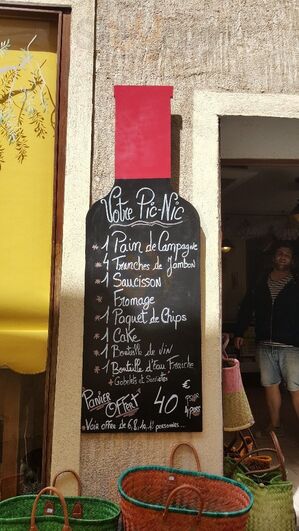 Votre Pic-Nic
* 1 Pain de Campagne
* 4 Tranches de Jambon
* 1 Saucisson
* Fromage
* 1 Paquet de Chips
* 1 Cake
* 1 Bouteille de vin
* 1 Bouteille d'Eau Fraîche
+ Gobelets et Serviettes
Panier OFFERT 40 € pour 4 pers
* Voir offre de 6, 8, 10, personnes...